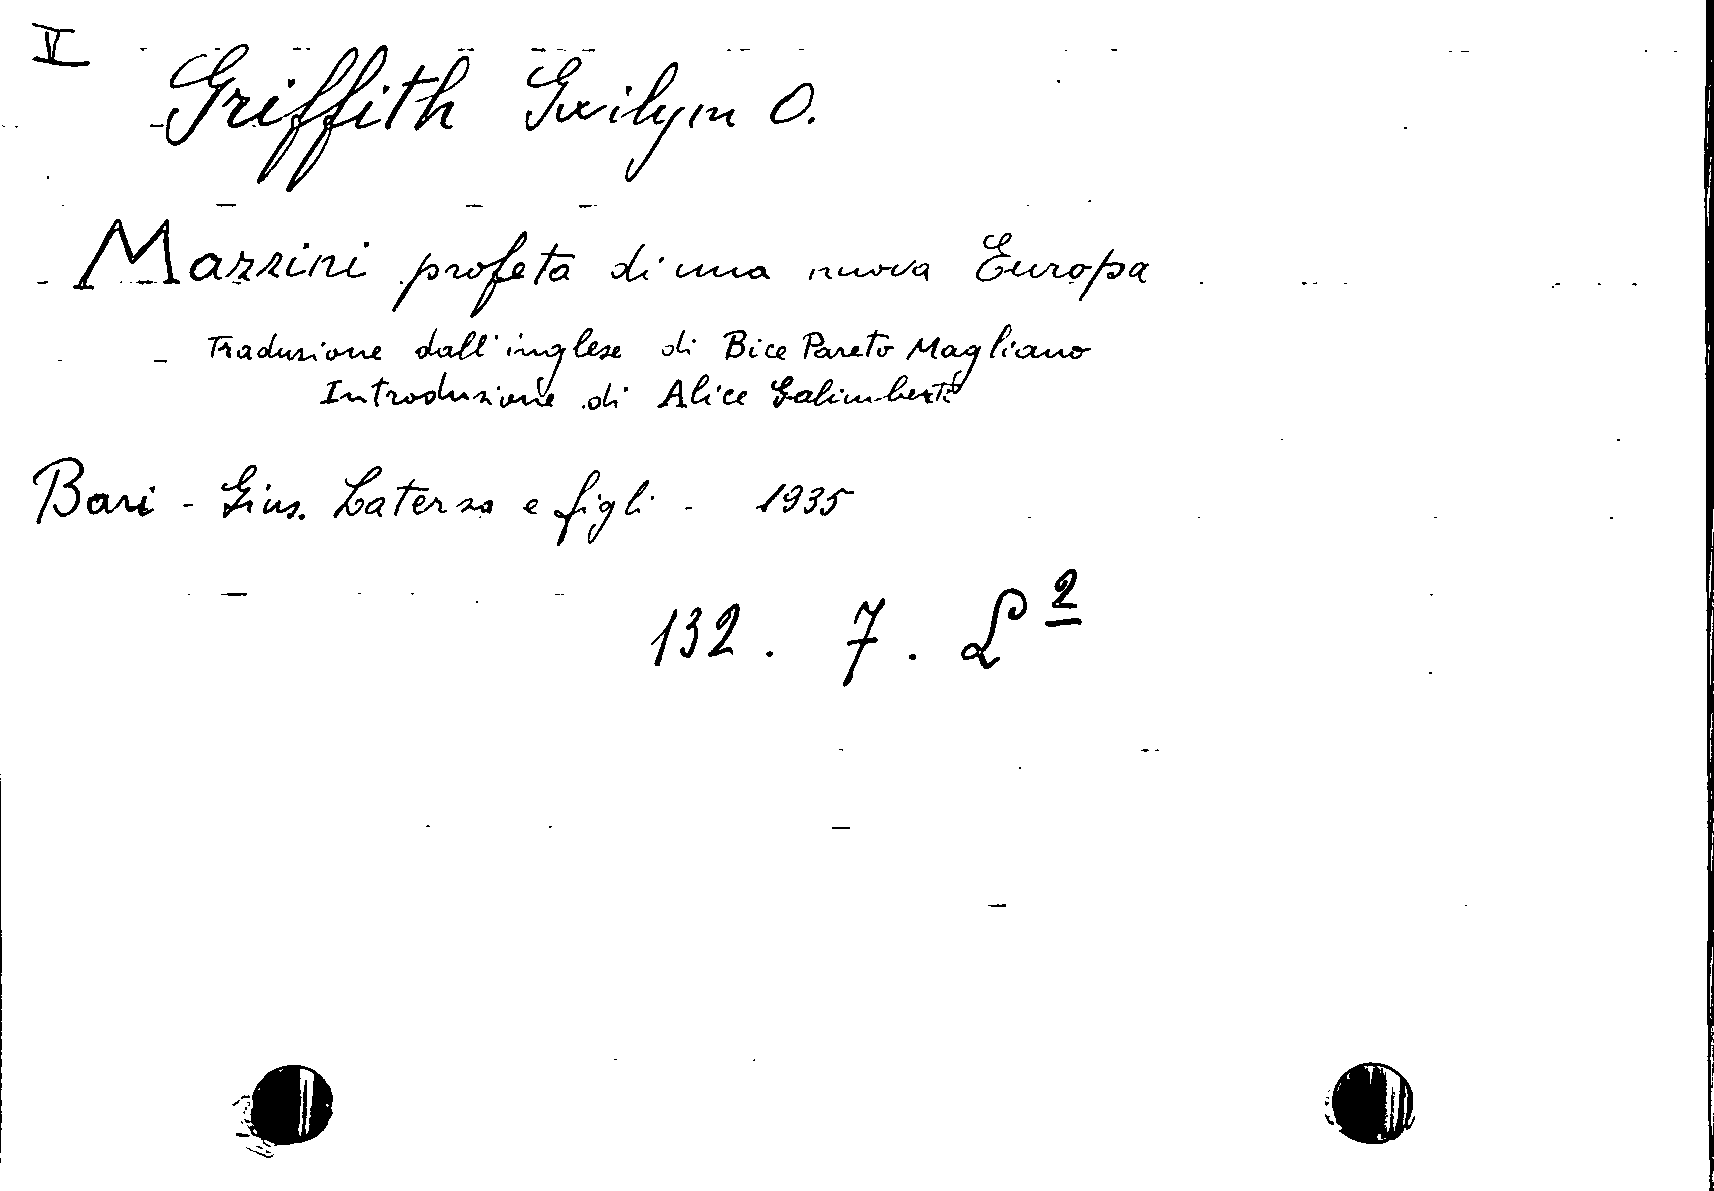 V
Griffith Gwilym O.
Mazzini profeta di una nuova Europa
Traduzione dall'inglese di Bice Pareto Magliano
Introduzione di Alice Galimberti
Bari - Gius. Laterza e figli - 1935
132. 7. L 2